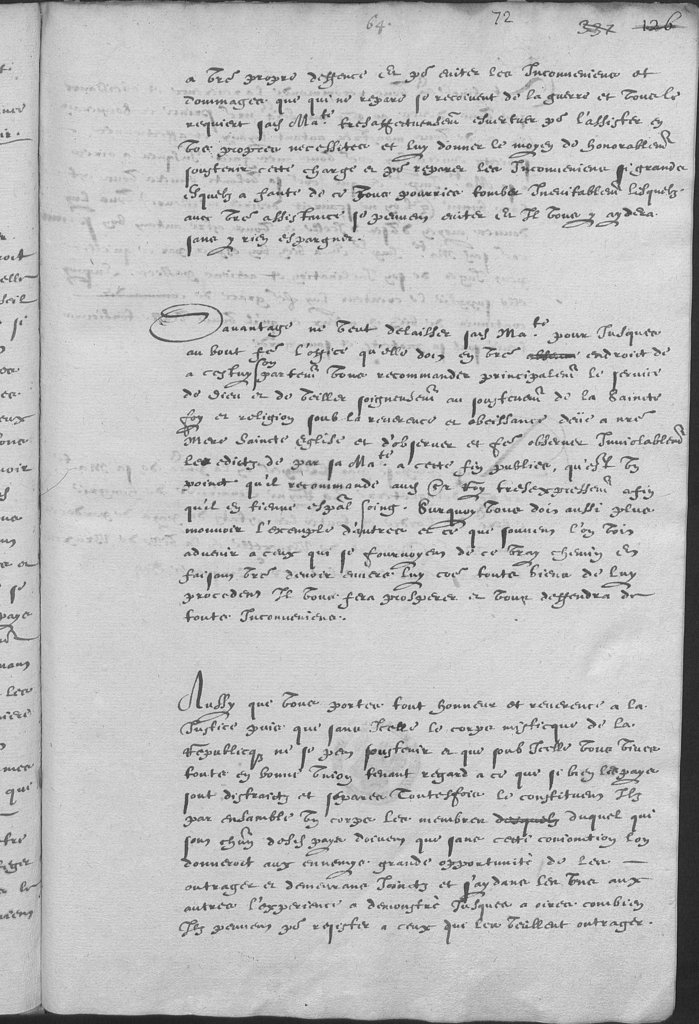 64. 72 337 126
a vre propre deffence et po eviter les Inconveniens et
dommages que qui ne repare se recoivent de la guerre et vous
requiert sad Mate tresaffectueusemt esvertuer po l'assister en
vos propres necessitez et luy donner le moyen de honorablemt
soustenir cette charge et po reparer les Inconveniens si grands
esquelz a faulte de ce vous pourriez tomber Inevitablemt lesquelz
avec vre assistance se peuvent eviter et Il vous y aydera
sans y rien espargner.
Davantage ne veut delaisser sad Mate pour Jusques
au bout fe l'office qu'elle doit en vre endroict de
a cestuy son partemt vous recommander principalemt le service
de Dieu et de veiller soigneusemt au soustenemt de la Saincte
foy et religion soub la reverence et obeissance deüe a nre
Mere Saincte Eglise et d'observer et fe observer Inviolablemt
les edictz de par sa Mate a cette fin publiez, qu'est un
poinct qu'il recommande aud Sr Roy tresexpressemt afin
qu'il en tienne espal soing. Surquoy vous doit aussi plus
mouvoir l'exemple d'autres et ce que souvent l'on voit
advenir a ceux qui se fourvoyent de ce vray chemin Et
faisant vre devoir envers luy coe toute biens de luy
procedent Il vous fera prosperer et vous deffendra de
touts Inconveniens.
Aussy que vous portez tout honneur et reverence a la
Justice puis que sans Icelle le corps misticque de la
Republicq ne se peut soustenir et que sub Icelle vous vivez
touts en bonne union tenant regard a ce que si bien les pays
sont distraictz et separez Toutesfois le constituent Ilz
par ensamble un corps les membres desquelz duquel qui
sont chun desd pays doivent que sans cette conionction l'on
donneroit aux ennemys grande opportunité de les
outrager et demeurans Joinctz et s'aydans les uns aux
autres l'experience a demonstré Jusques a ores combien
Ilz peuvent po resister a ceux qui les veullent outrager.